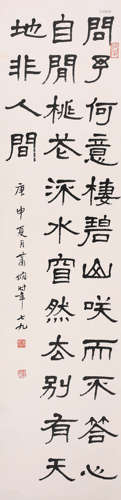 問予何意棲碧山咲而不答心
自閒桃花流水窅然去別有天
地非人間
庚申夏月蕭嫻時年七九